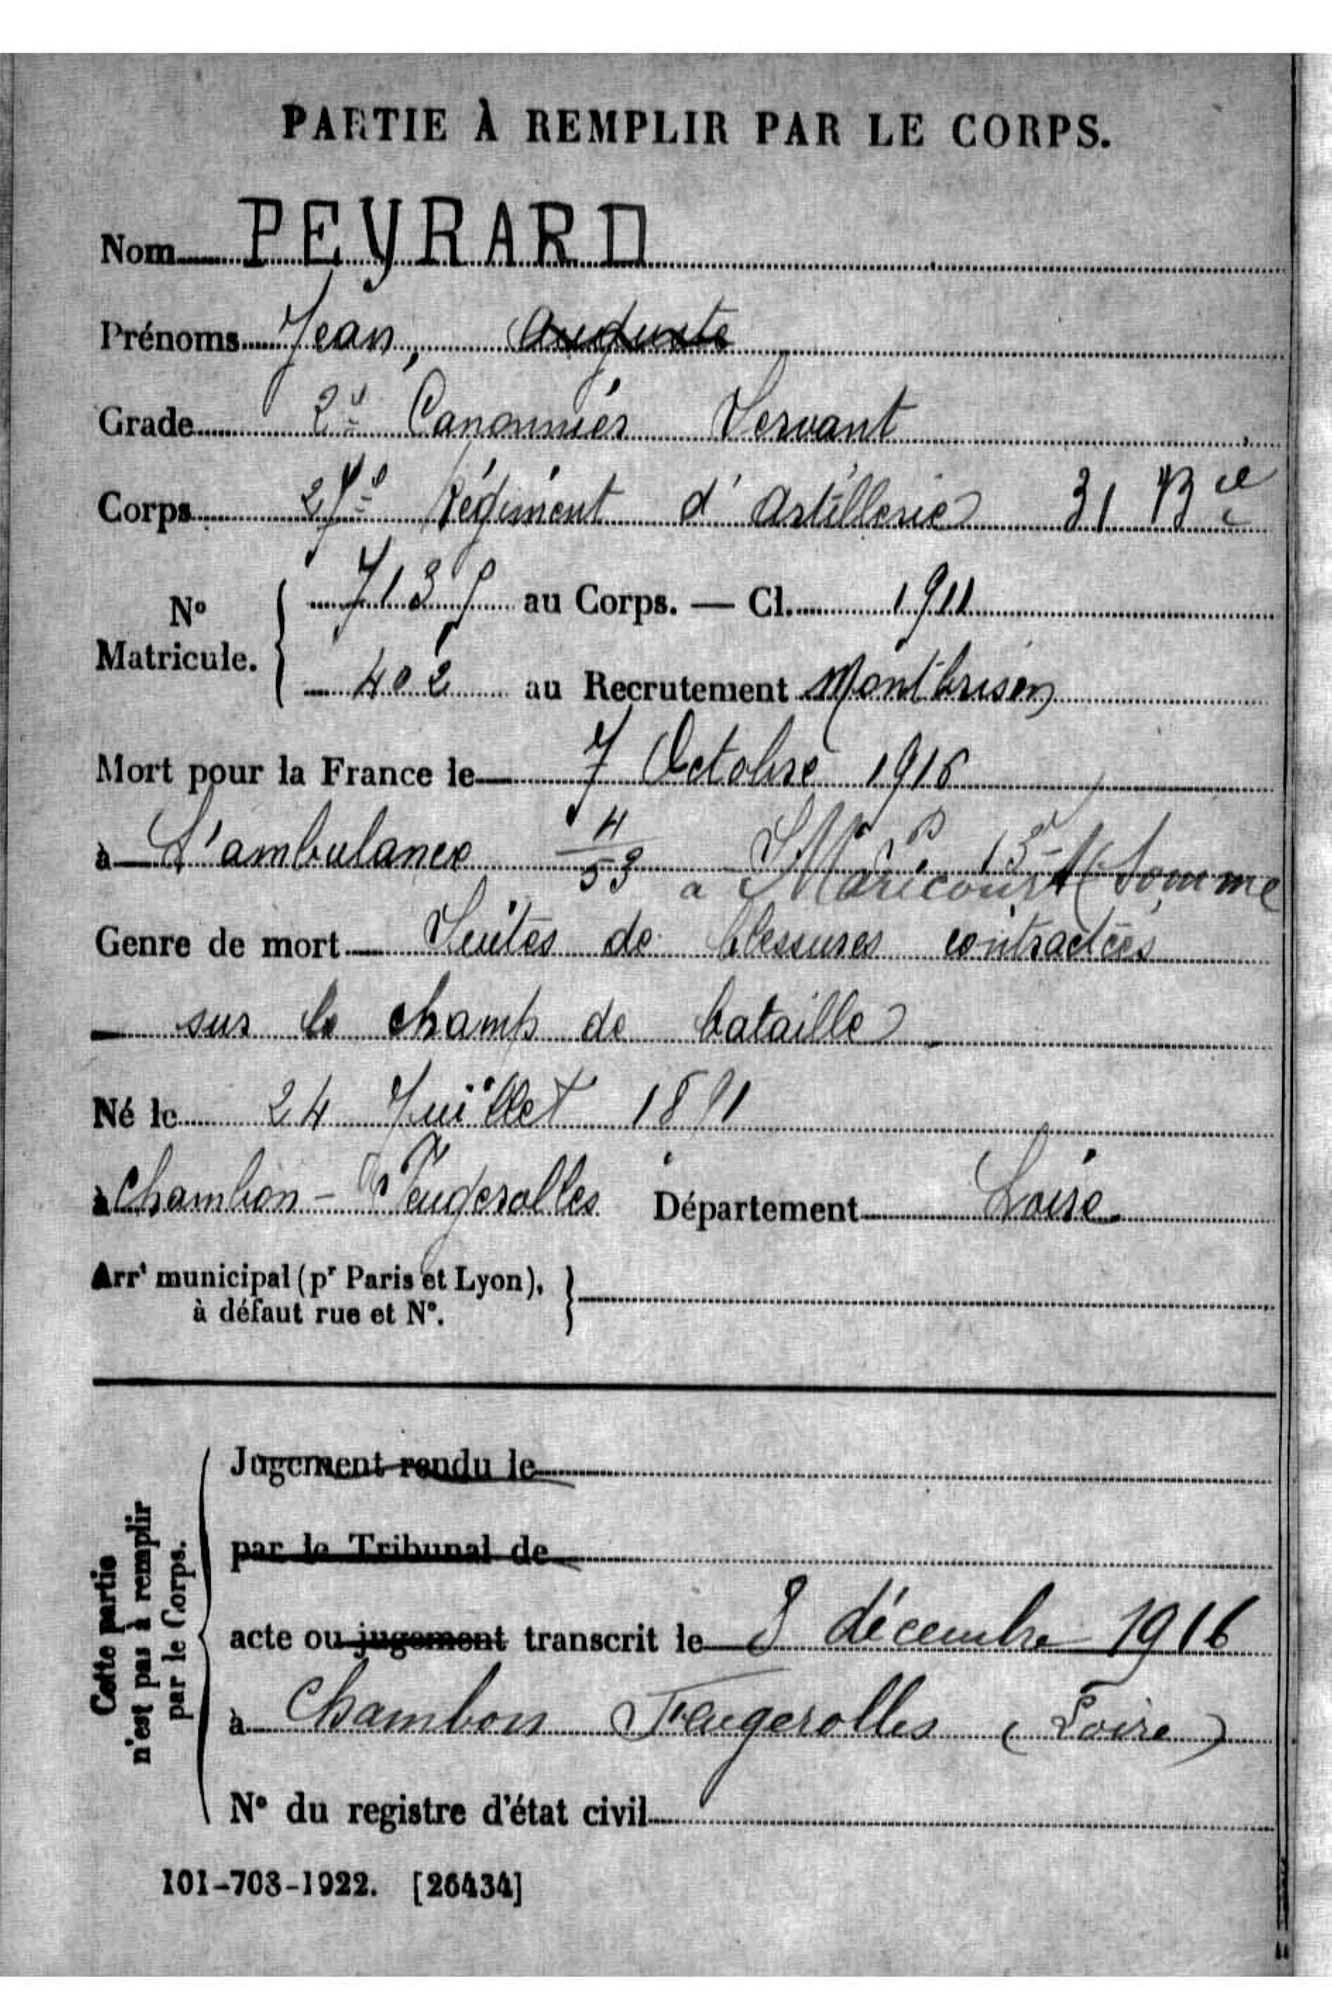 PARTIE À REMPLIR PAR LE CORPS.
Nom PEYRARD
Prénoms Jean, Auguste
Grade 2e Canonnier Servant
Corps Régiment d'Artillerie 31 Bie
No Matricule. au Corps. — Cl. 1911
402 au Recrutement Montbrison
Mort pour la France le 7 Octobre 1916
à L'ambulance 4/53 à Maricourt (Somme
Genre de mort Suites de blessures contractées
sur le champ de bataille
Né le 24 Juillet 1891
à Chambon-Feugerolles Département Loire.
Arrt municipal (pr Paris et Lyon),
à défaut rue et No.
Cette partie
n'est pas à remplir
par le Corps.
Jugement rendu le
par le Tribunal de
acte ou jugement transcrit le 8 décembre 1916
à Chambon Feugerolles (Loire)
No du registre d'état civil
101-708-1922. [26434]